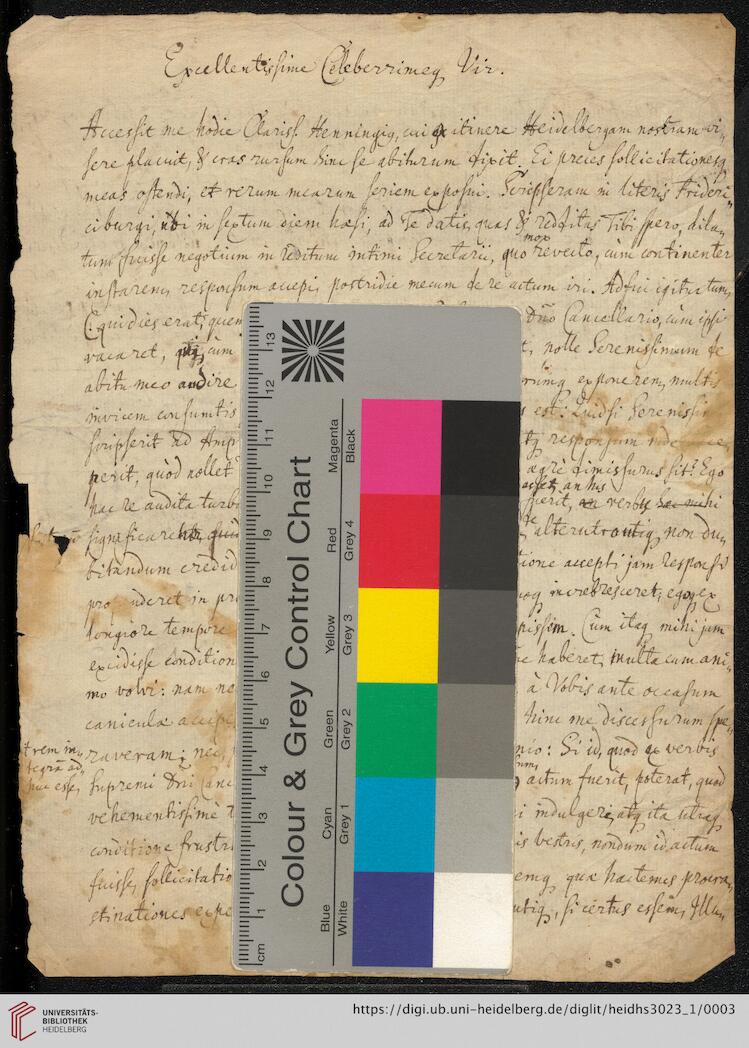 Excellentissime Celeberrimeq Vir.
Accessit me hodie Clariss. Henningiq, cui ex itinere Heidelbergam nostram vi„
sere placuit, & cras rursum hinc se abiturum dixit. Ei preces sollicitationesq
meas ostendi, et rerum mearum seriem exposui. Scripseram in literis Frideri„
ciburgi, ubi in septum diem hæsi, ad Te datis, quas & redditas Tibi spero, dila„
tum fuisse negotium in reditum intimi Secretarii, quo mox reverso, cùm continenter
instarem, responsum accepi, postridie mecum de re actum iri. Adfui igitur tum,
C. qui dies erat, quem
Dño Cancellario, cùm ipsi
vacaret, cùm
t, nolle Serenissimum de
abitu meo audire
exponerem, multis
invicem consumtis
s est: Quid si Serenissi
scripserit ad Amp
responsum
perit, quòd nollet
ægrè dimissurus sit? Ego
hac re audita turb
fuerit, verbis mihi
significare
alterutro utiq non du„
bitandum credid
tione accepti jam responsi
in pr
increbresceret, egoq ex
longiore tempore
pissim. Cum itaq mihi jam
excidisse condition
haberet, multa cum ani„
mo volvi: nam
à Vobis ante occasum
caniculæ accep
hinc me discessurum spe„
raveram; nec
nio: Si id, quod ex verbis
Supremi Dñi Canc
actum fuerit, poterat, quod
vehementissimè
i indulgere, atq ita utraq
conditione frustr
is vestris, nondum id actum
fuisse, sollicitatio
emq, quæ hactenus procra„
stinationes expe
utiq, si certus essem, Illu„
cm 1 2 3 4 5 6 7 8 9 10 11 12 13
Colour & Grey Control Chart
Blue Cyan Green Yellow Red Magenta
White Grey 1 Grey 2 Grey 3 Grey 4 Black
UNIVERSITÄTS-
BIBLIOTHEK
HEIDELBERG
https://digi.ub.uni-heidelberg.de/diglit/heidhs3023_1/0003